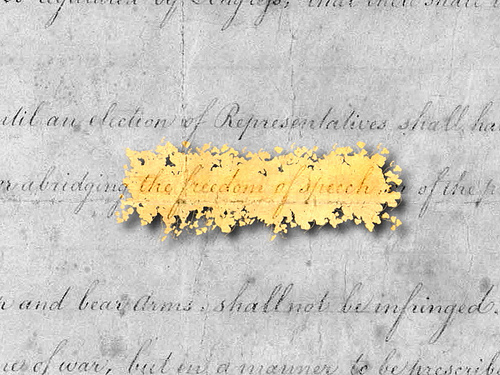 regulated by Congress, that there shall
until an election of Representatives shall ha
or abridging the freedom of speech, or of the p
r and bear Arms, shall not be infringed.
me of war, but in a manner to be prescrib